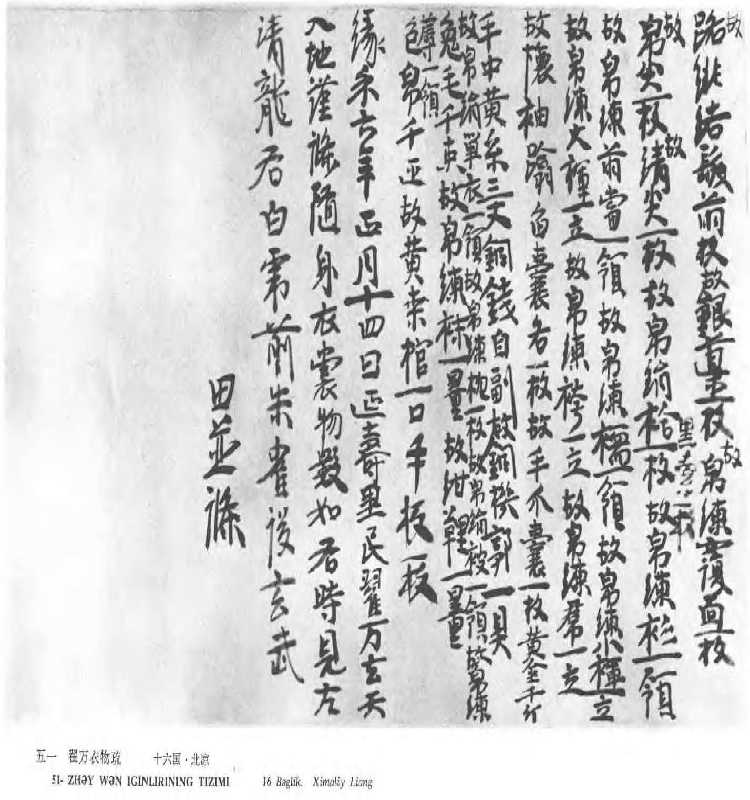 故路緋結髮兩枚故銀導一枚故帛練覆面一枚
故帛尖一枚故績尖一枚故帛綃枱一枚故帛練衫一領
故帛練兩當一領故帛練襦一領故帛練小褌一立
故帛練大褌一立故帛練袴一立故帛練裙一立
故懷袖蹹臼囊各一枚故手爪囊一枚黃金千斤
手中黃糸三丈銅錢自副故銅郭一具
故帛綃單衣一領故帛練枕一枚故帛綃被一領故帛練
一領
兔毛千束故帛練袜一量故紺鞾一量
色帛千疋故黃桒棺一口手板一枚
緣禾六年正月十四日延壽里民翟万去天
入地謹條隨身衣裳物數如右時見左
清龍右白虎前朱雀後玄武
田並條
五一 翟万衣物疏 十六国·北凉
51- ZHƏY WƏN IGINLIRINING TIZIMI 16 Bəglik. Ximaliy Liang